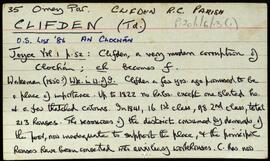 35 Omey Par. CLIFDEN R.C. PARISH
CLIFDEN (Td.) P120/6/3(1)
O.S. List '86 AN CLOCHÁN
Joyce Vol 1 p.52: Clifden, a very modern corruption of
Clochán; ch becomes f.
Wakeman (1850?) Clifden a few yrs ago promised to be
a place of importance. Up to 1822 no slates except one slated ho.
& a few thatched cabins. In 1841, 16 1st class, 98 2nd class, total
213 houses. The resources of the district consumed by demands of
the poor, now inadequate to support the place, & the principle
houses have been converted into auxiliary workhouses. C. has now